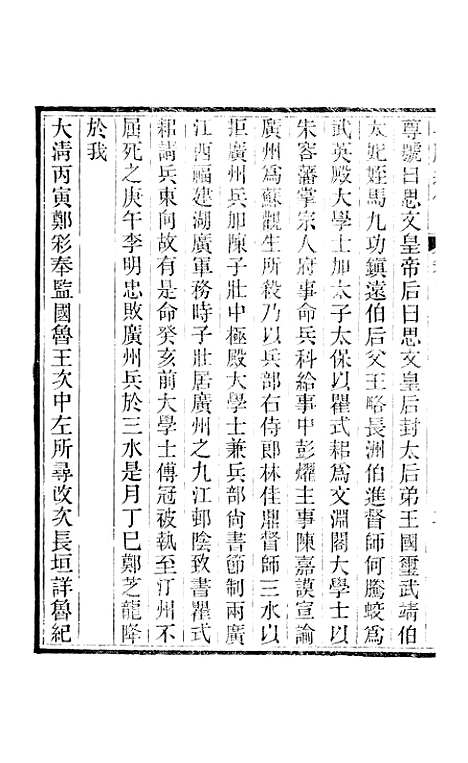 尊號曰思文皇帝后曰思文皇后封太后弟王國璽武靖伯
太妃姪馬九功鎮遠伯后父王略長洲伯進督師何騰蛟爲
武英殿大學士加太子太保以瞿式耜爲文淵閣大學士以
朱容藩掌宗人府事命兵科給事中彭燿主事陳嘉謨宣諭
廣州爲蘇觀生所殺乃以兵部右侍郎林佳鼎督師三水以
拒廣州兵加陳子壯中極殿大學士兼兵部尚書節制兩廣
江西福建湖廣軍務時子壯居廣州之九江邨陰致書瞿式
耜請兵東向故有是命癸亥前大學士傅冠被執至汀州不
屈死之庚午李明忠敗廣州兵於三水是月丁巳鄭芝龍降
於我
大清丙寅鄭彩奉監國魯王次中左所尋改次長垣詳魯紀